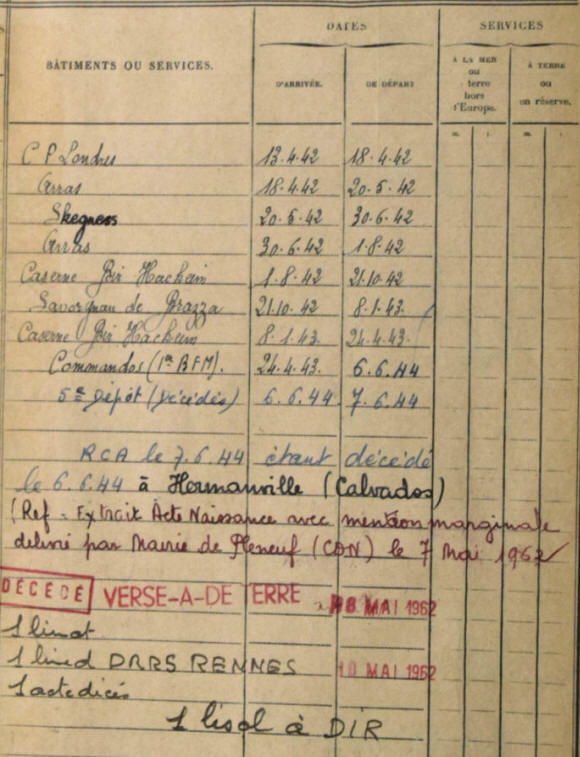 BÂTIMENTS OU SERVICES.
DATES
D'ARRIVÉE.
DE DÉPART
SERVICES
À LA MER
ou
terre
hors
d'Europe.
À TERRE
ou
en réserve.
m. j. m. j.
C P Londres 13.4.42 18.4.42
Arras 18.4.42 20.5.42
Skegness 20.5.42 30.6.42
Arras 30.6.42 1.8.42
Caserne Bir Hacheim 1.8.42 21.10.42
Savorgnan de Brazza 21.10.42 8.1.43.
Caserne Bir Hacheim 8.1.43. 24.4.43.
Commandos (1er BFM). 24.4.43. 6.6.44
5e Dépôt (Décédés) 6.6.44 7.6.44
RCA le 7.6.44 étant décédé
le 6.6.44 à Hermanville (Calvados)
(Ref = Extrait Acte Naissance avec mention marginale
délivré par Mairie de Pleneuf (CDN) le 7 Mai 1962
DÉCÉDÉ VERSE-A-DE TERRE 8 MAI 1962
1
1 DRRS RENNES 10 MAI 1962
1 acte
1 à DIR